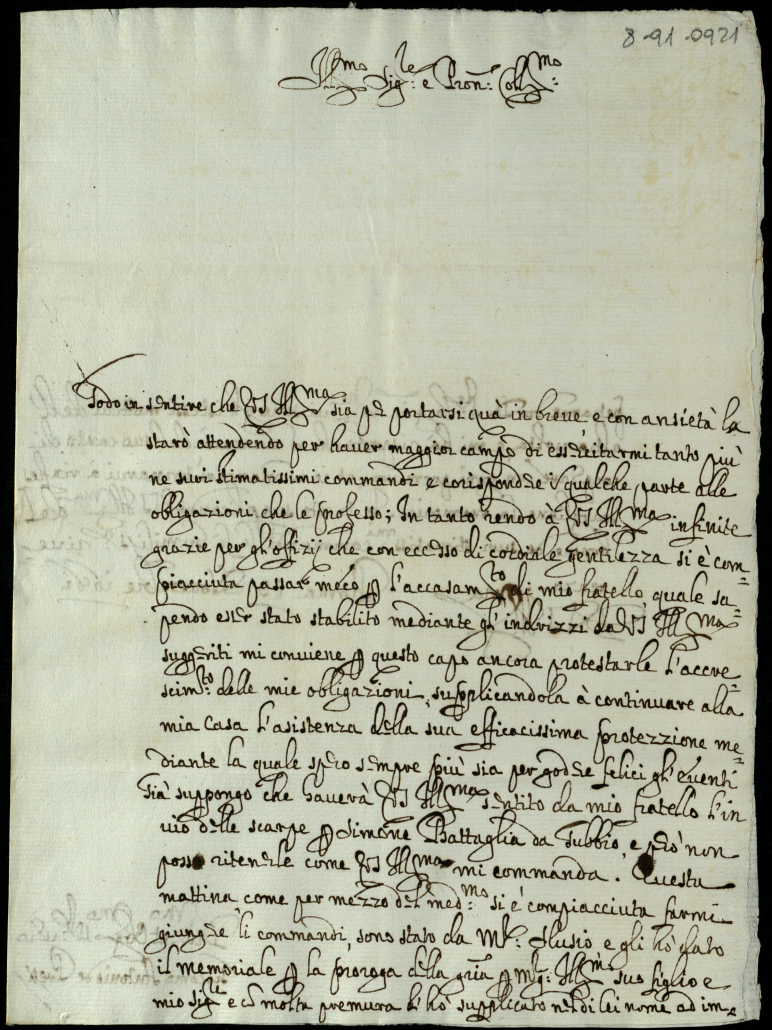 8-91-0921
Ill.mo Sig.re e Pron: Coll.mo
Godo in sentire che VS Ill.ma sia per portarsi quà in breve, e con ansietà la
starò attendendo per haver maggior campo di essercitarmi tanto più
ne suoi stimatissimi commandi e corispondere in qualche parte alle
obligazioni che le professo; In tanto rendo à VS Ill.ma infinite
grazie per gl'offizij che con eccesso di cordiale gentilezza si è com=
piacciuta passar meco p l'accasam.to di mio fratello quale sa=
pendo esser stato stabilito mediante gl'indrizzi da VS Ill.ma
suggeriti mi conviene p questo capo ancora protestarle l'accre=
scim.to delle mie obligazioni, supplicandola à continuare alla
mia Casa l'asistenza della sua efficacissima protezzione me=
diante la quale spero sempre più sia per godere felici gl'eventi
Già suppongo che haverà VS Ill.ma sentito da mio fratello l'in
vio delle scarpe p Simone Battaglia da Gubbio, e però non
posso ritenerle come VS Ill.ma mi commanda. Questa
mattina come per mezzo del med.mo si è compiacciuta farmi
giungere li commandi, sono stato da Mr: Slusio e gli hò dato
il memoriale p la proroga della gria p Mr: Ill.mo suo figlio e
mio Sig.re e cō molta premura l'hò supplicato nel di lei nome ad im=